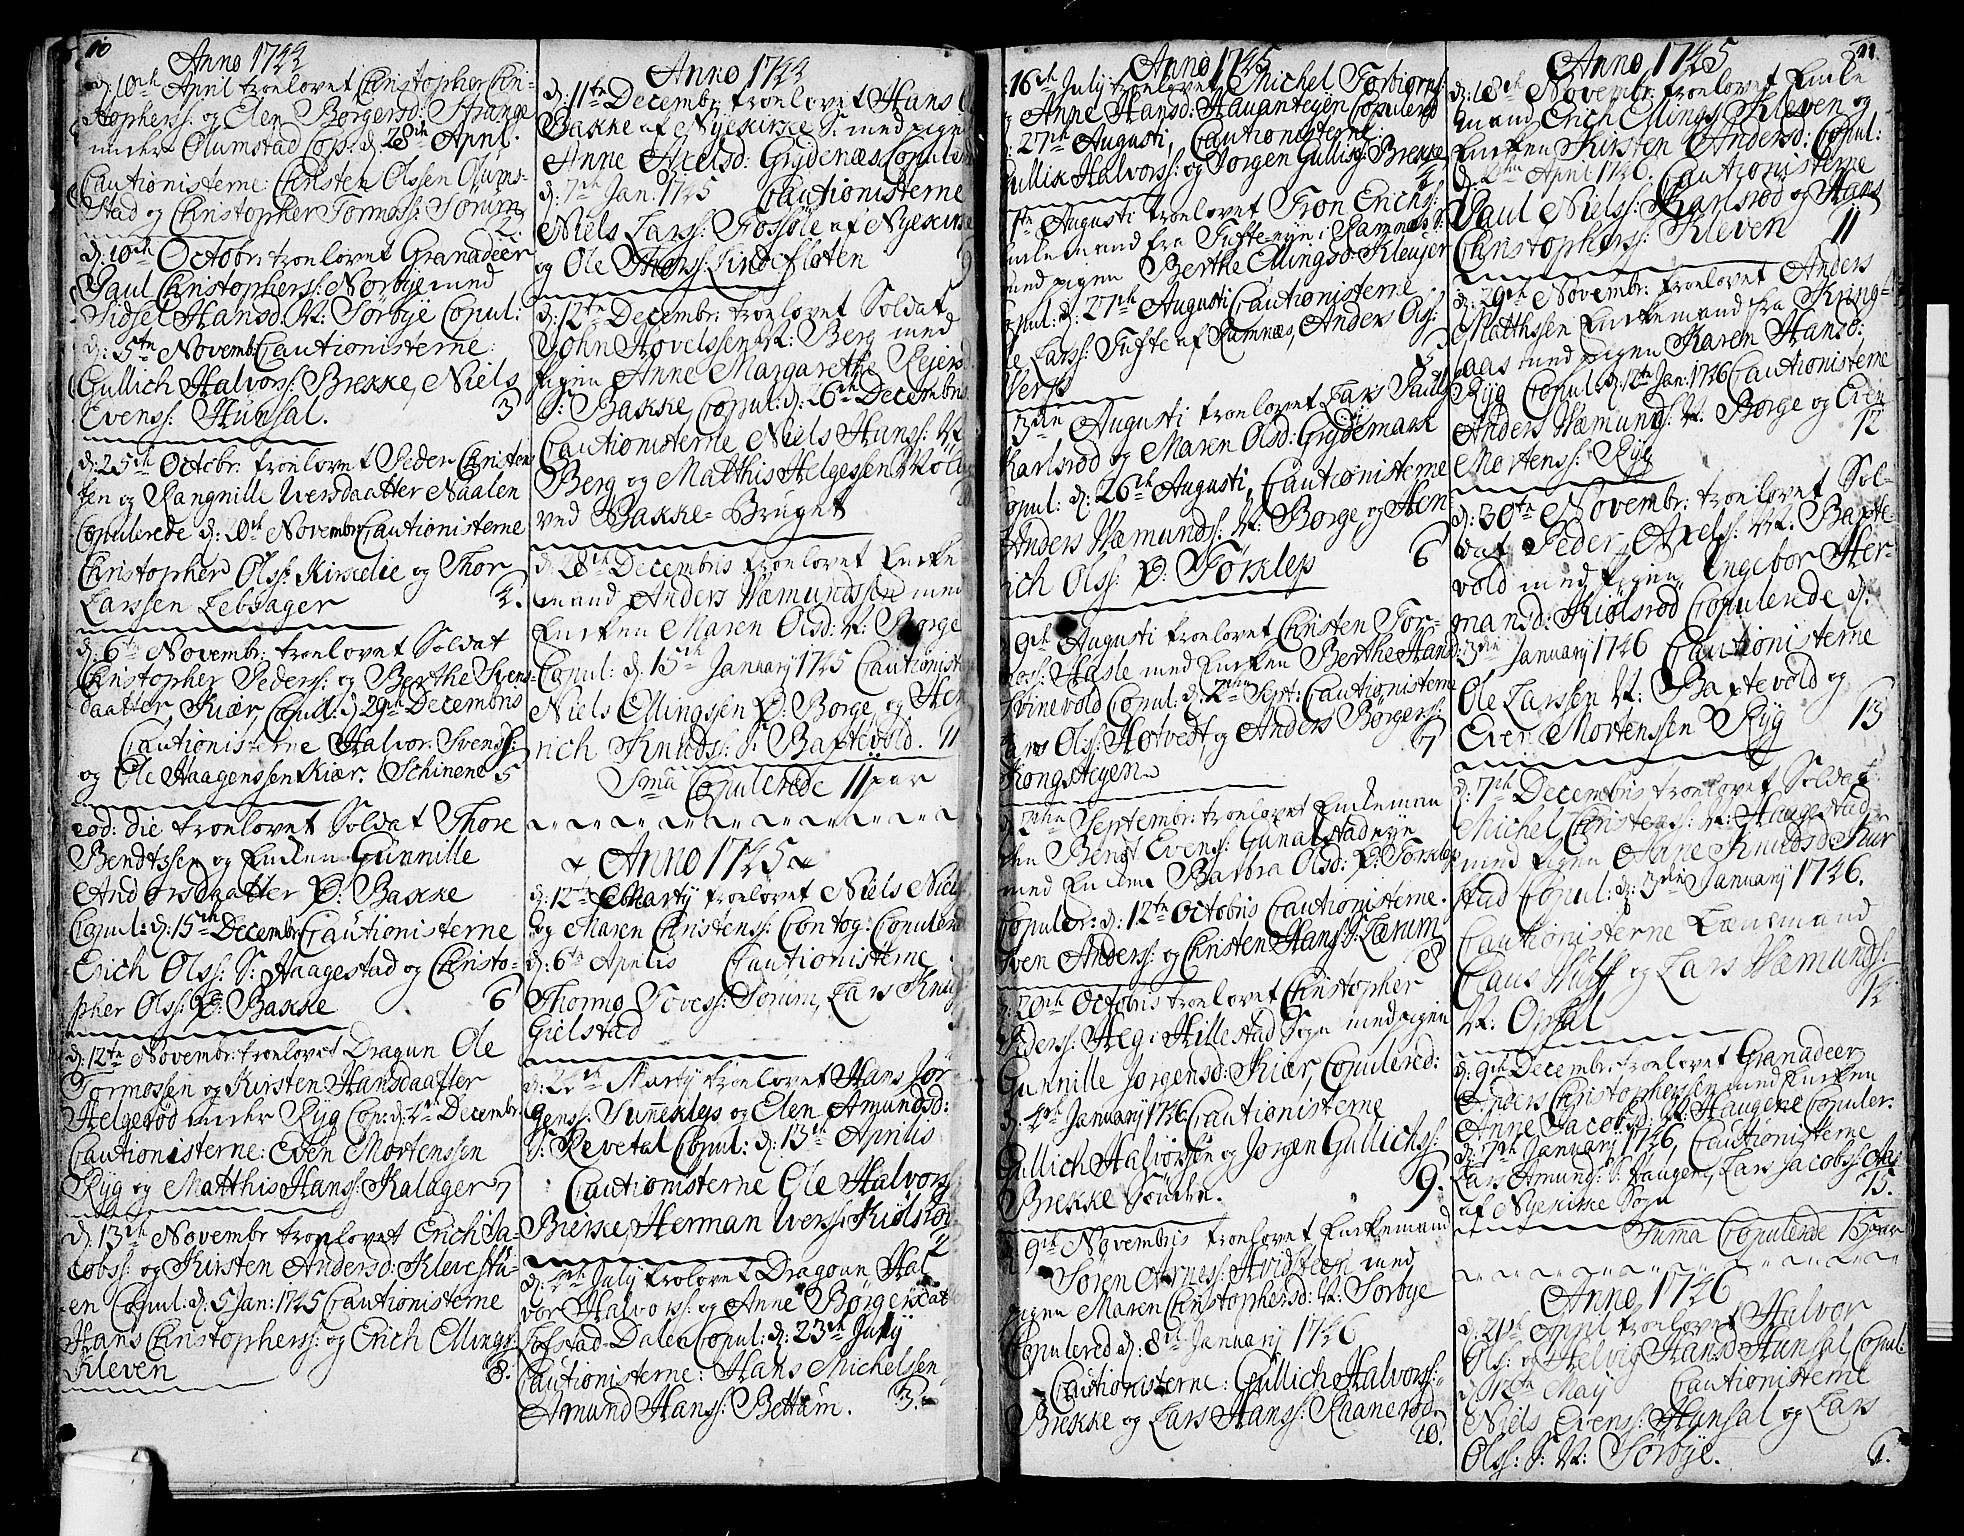 10
Anno 1744
d: 10de April troelovet Christopher Chri-
stophers: og Elen Borgersd: Strange
under Olumstad Cop: d: 28de April.
Cautionisterne: Christen Olssen Olum-
stad og Christopher Tormoss: Sørum
2.
d: 10de Octobr: troelovet Granadeer
Paul Christophers: Nørbÿe med
Sidsel Hansd: N: Sörbÿe Copul:
d: 5te Novembr Cautionisterne:
Gullich Halvors: Brekke, Niels
Evens: Hunsal. 3
d: 25de Octobr: troelovet Peder Christen-
sen og Rangnille Iversdaatter Naalen
Copulerede d: 20de Novembr Cautionisterne
Christopher Olss: Kirkelie og Thor
Larssen Lebsager 4.
d: 6te Novembr: troelovet Soldat
Christopher Peders: og Berthe Svens-
daatter Kiær, Copul: d: 29de Decembris
Cautionisterne Halvor Svenss:
og Ole Haagenssen Kiær. Schinene 5
eod: die troelovet Soldat Thore
Bendtssen og Enken Gunnille
Andorsdaatter Ø: Bakke
Copul: d: 15de Decembr: Cautionisterne
Erich Olss: S: Haagestad og Christo-
pher Olss: Ø: Bakke 6
d: 12te Novembr: troelovet Dragun Ole
Tormossen og Kirsten Hansdaatter
Helgerød under Rÿg Cop: d: 4de Decembr:
Cautionisterne: Even Mortenssen
Rÿg og Matthis Hans: Kalager 7
d: 13de Novembr troelovet Erich Ja-
cobss: og Kirsten Andersd: Kleve stu-
en Copul: d: 5 Jan: 1745 Cautionisterne
Hans Christophers: og Erich Ellings:
Kleven 8.
Anno 1744
d: 11te Decembr: troelovet Hans
Bakke af Nÿekirke S: med pigen
Anne Axelsd: Grydenæs Copulered
d: 7de Jan: 1745 Cautionisterne
Niels Lars: Fossøle af Nÿekirke
og Ole Thors: Lindefloten 9
d: 12te Decembr: troelovet Soldat
John Hovelssen N: Berg med
pigen Anne Margarethe Rejersd
S: Bakke, Copul: d: 26de Decembris
Cautionisterne Niels Hanss: N:
Berg og Matthis Helgessen Wold
ved Bakke-Bruget 10
d: 28de Decembris troelovet Enke
mand Anders Wæmundssen med
Enken Maren Olsd: N: Borge
Copul: d: 15de Januarÿ 1745 Cautionist:
Niels Ellingssen Ø: Borge og Hen
rich Knuds: S: Baxtevold. 11
Sma Copulerede 11 par
Anno 1745
d: 12te Martÿ troelovet Niels Niels
og Maren Christenss: Contog: Copulered
d: 6te Aprilis Cautionisterne
Thormo Tovess: Sørum, Lars Knuds
Gielstad
d: 22de Martÿ troelovet Hans Jör-
genss: Sunneklep og Elen Amundsd:
S: Revetal Copul: d: 13de Aprilis
Cautionisterne Ole Halvors:
Bierke, Herman Ivers: Kiølsrød
2
d: 4de Julÿ trolovet Dragoun Hal
vor Halvors: og Anne Børgersdatter
Tofstad-Dalen Copul: d: 23de Julÿ
Cautionisterne: Hans Michelsen,
Amund Hanss: Bettum. 3.
Anno 1745
16de Julÿ troelovet Michel Torbiorns:
og Anne Hansd: Hauantegen Copulered
d: 27de Augusti, Cautionisterne:
Gullik Halvors: og Jorgen Gulliss: Brekke
4
1te Augusti troelovet Tron Erichs:
Enkemand fra Tufte eÿe i Ramnæs S:
med pigen Berthe Ellingsd: Klevjer
Copul: d: 27de Augusti Cautionisterne
Ole Larss: Tufte af Ramnæs, Anders Ols:
5
3die Augusti troelovet Lars Pauls
Karlsrød og Maren Olsd: Grÿdemark
Copul: d: 26de Augusti, Cautionisterne
Anders Wæmunds: N: Borge og Hen
rich Olss: Ø: Törklep 6
9de Augusti troelovet Christen Tor-
mos: Hasle med Enken Berthe Hansd:
Svinevold Copul: d: 2den Sept: Cautionisterne
Lars Olss: Hotvedt og Anders Børgers:
Kongstegen 7
d: 2den Septembr: troelovet Enkeman
den Bendt Evens: Gunarstad eÿe
med Enken Barbra Olsd: Ø: Torklep
Copuler: d: 12te Octobris Cautionisterne.
Sven Anders: og Christen Hans: S: Lærum
8
d: 20de Octobris troelovet Christopher
Peders: Heg i Hillestad Sogn med pigen
Gunnille Jorgensd: Kiær, Copulered:
d: 4de Januarÿ 1746 Cautionisterne
Gullich Halvorsen og Jorgen Gullichs:
Brekke Sønden. 9.
9de Novembris troelovet Enkemand
Søren Arness: Hvidsteen med
pigen Maren Christophersd: N: Sorbÿe
Copulered d: 8de Januarÿ 1746
Cautionisterne: Gullich Halvors:
Brekke og Lars Hanss: Raanerød
10.
11.
Anno 1745
d: 18de Novembr: troelovet Enke
mand Erich Ellings: Kleven og
Enken Kirsten Andersd: Copul:
d: April 1746. Cautionisterne
Paul Niels: Karlsrod og Hans
Christophers: Kleven 11
d: 29de Novembr: troelovet Anders
Matthssen Enkemand fra Kring-
laas med pigen Karen Hansd:
Rÿg Copul: d: 12te Jan: 1746 Cautionisterne
Anders Wæmunds: N: Borge og Even
Mortenss: Rÿg 12
d: 30te Novembr: troelovet Sol-
dat Peder Axels: N: Baxte-
vold med pigen Ingebor Her-
mansd: Kiölsrød Copulerede d:
3die Januarÿ 1746 Cautionisterne
Ole Larssen N: Baxtevold og
Even Mortenssen Rÿg 13
d: 7de Decembris troelovet Soldat
Michel Christens: N: Haagestad
med pigen Anne Knudsd: Skur
stad Copul: d: 3die Januarÿ 1746.
Cautionisterne Lænsmand
Claus Wulf og Lars Wæmunds:
N: Opsal 14
d: 9de Decembr: troelovet Granadeer
Anders Christophersen med Enken
Anne Jacobsd: N: Haugene Copuler:
d: 7de Januarÿ 1746, Cautionisterne
Lars Amunds: S: Haugen, Lars Jacobs: Aas
af Nÿekirke Sogn 15.
Summa Copulerede 15 par
Anno 1746
d: 21de April troelovet Halvor
Olss: og Helvig Hansd Hunsal Copul:
d: 12te Maÿ Cautionisterne
Niels Evenss: Hunsal og Lars
Olss: S: N: Sørbÿe. 1.